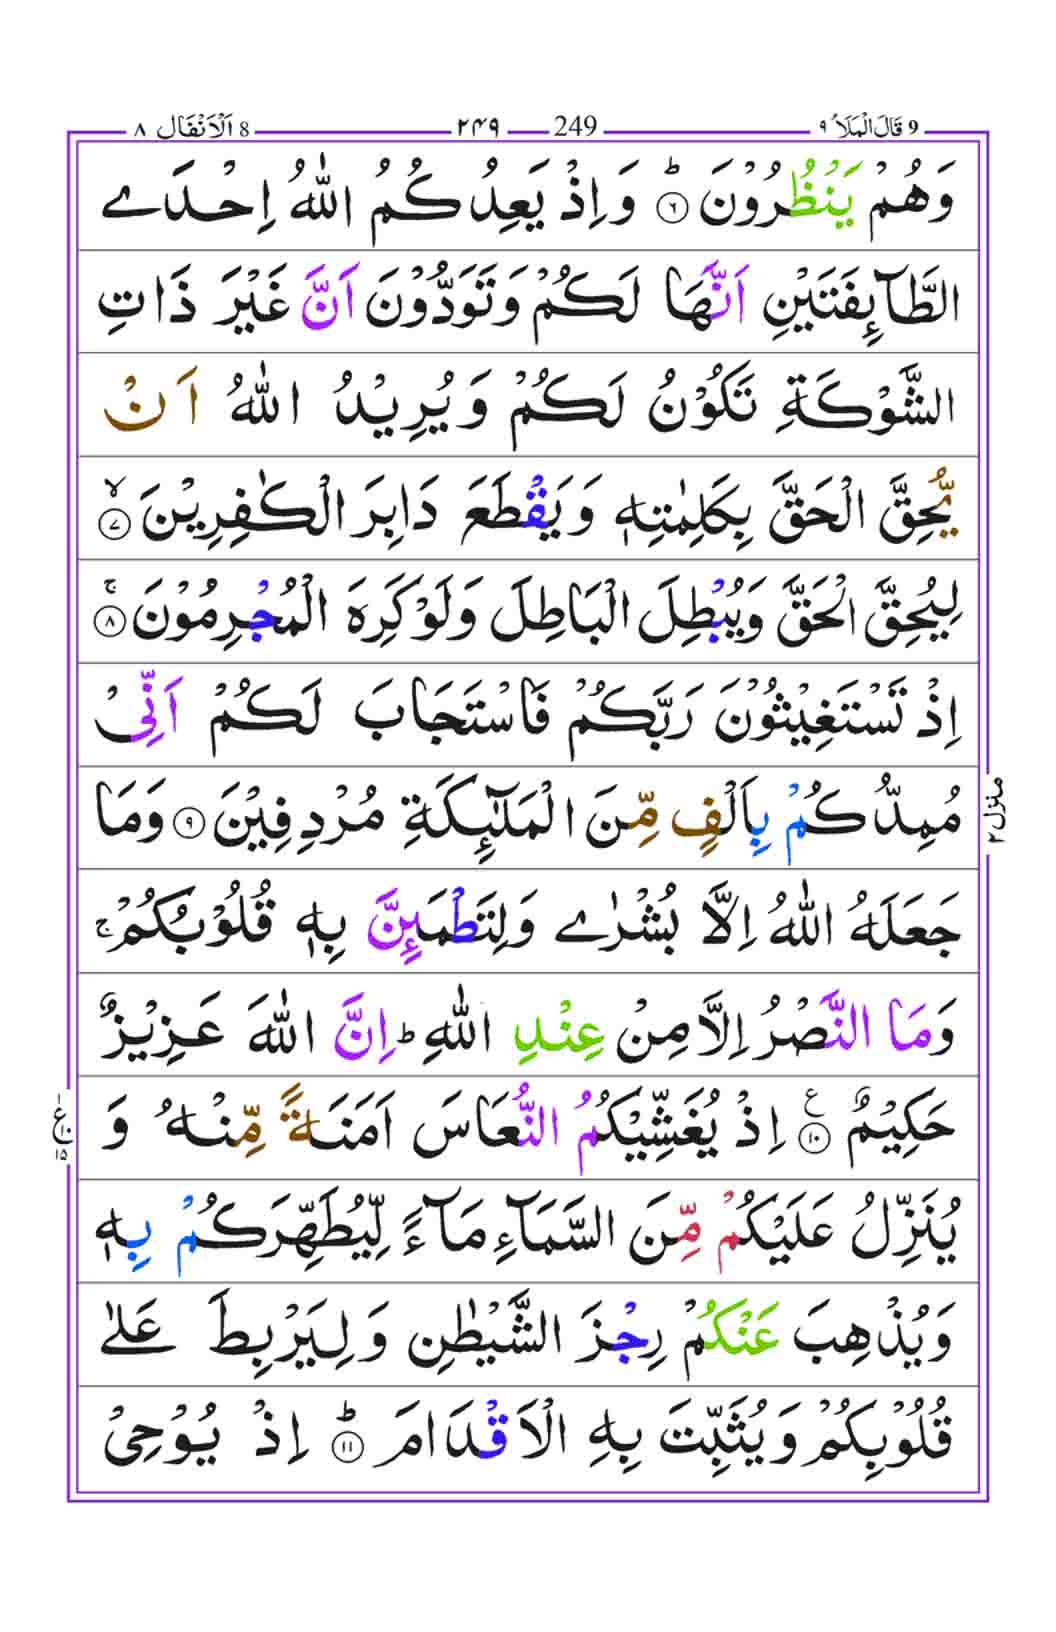 9 قَالَ الْمَلَاُ ٩ 249 ٢٤٩ 8 اَلْاَنْفَال ٨
وَهُمْ يَنْظُرُوْنَ ؕ ٦ وَاِذْ يَعِدُكُمُ اللّٰهُ اِحْدَے
الطَّآئِفَتَيْنِ اَنَّهَا لَكُمْ وَتَوَدُّوْنَ اَنَّ غَيْرَ ذَاتِ
الشَّوْكَةِ تَكُوْنُ لَكُمْ وَيُرِيْدُ اللّٰهُ اَنْ
يُّحِقَّ الْحَقَّ بِكَلِمٰتِهٖ وَيَقْطَعَ دَابِرَ الْكٰفِرِيْنَ ۙ ٧
لِيُحِقَّ الْحَقَّ وَيُبْطِلَ الْبَاطِلَ وَلَوْ كَرِهَ الْمُجْرِمُوْنَ ۚ ٨
اِذْ تَسْتَغِيْثُوْنَ رَبَّكُمْ فَاسْتَجَابَ لَكُمْ اَنِّىْ
مُمِدُّكُمْ بِاَلْفٍ مِّنَ الْمَلٰٓئِكَةِ مُرْدِفِيْنَ ٩ وَمَا
جَعَلَهُ اللّٰهُ اِلَّا بُشْرٰے وَلِتَطْمَئِنَّ بِهٖ قُلُوْبُكُمْ ۚ
وَمَا النَّصْرُ اِلَّا مِنْ عِنْدِ اللّٰهِ ؕ اِنَّ اللّٰهَ عَزِيْزٌ
حَكِيْمٌ ١٠ ع اِذْ يُغَشِّيْكُمُ النُّعَاسَ اَمَنَةً مِّنْهُ وَ
يُنَزِّلُ عَلَيْكُمْ مِّنَ السَّمَآءِ مَآءً لِّيُطَهِّرَكُمْ بِهٖ
وَيُذْهِبَ عَنْكُمْ رِجْزَ الشَّيْطٰنِ وَلِيَرْبِطَ عَلٰے
قُلُوْبِكُمْ وَيُثَبِّتَ بِهِ الْاَقْدَامَ ؕ ١١ اِذْ يُوْحِىْ
منزل ٢
ع ١٠ ١٥